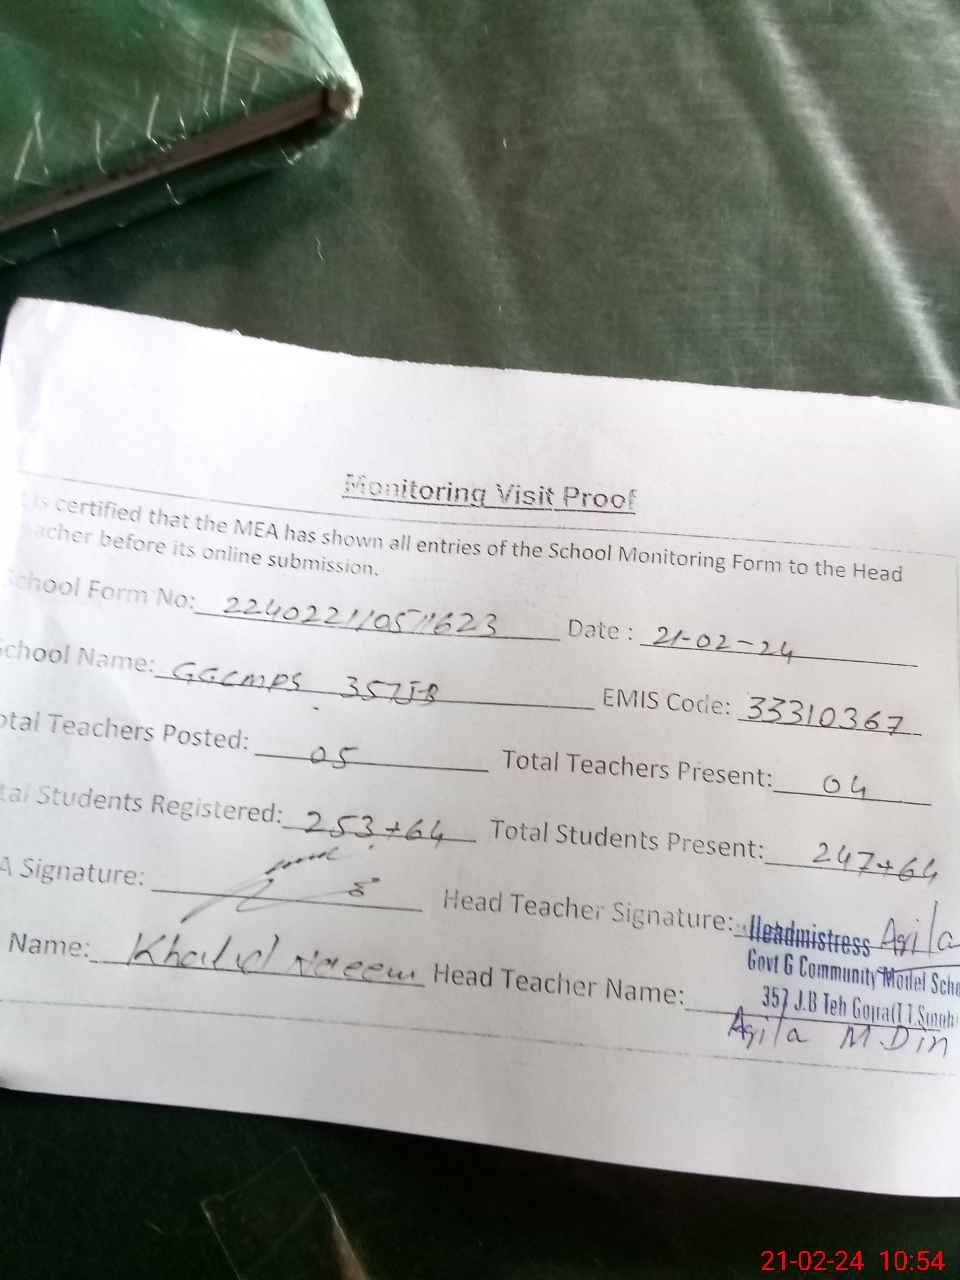 Monitoring Visit Proof
is certified that the MEA has shown all entries of the School Monitoring Form to the Head
acher before its online submission.
School Form No: Date : 21-02-24
School Name: GGCMPS 357JB EMIS Code: 33310367
otal Teachers Posted: 05 Total Teachers Present: 04
tal Students Registered: 253+64 Total Students Present: 247+64
A Signature: Head Teacher Signature: Headmistress Aqila
Govt G Community Model Scho
Name: Khalid Naeem Head Teacher Name: 357 J.B Teh Gojra(T.T.Singh
Aqila M.Din
21-02-24 10:54